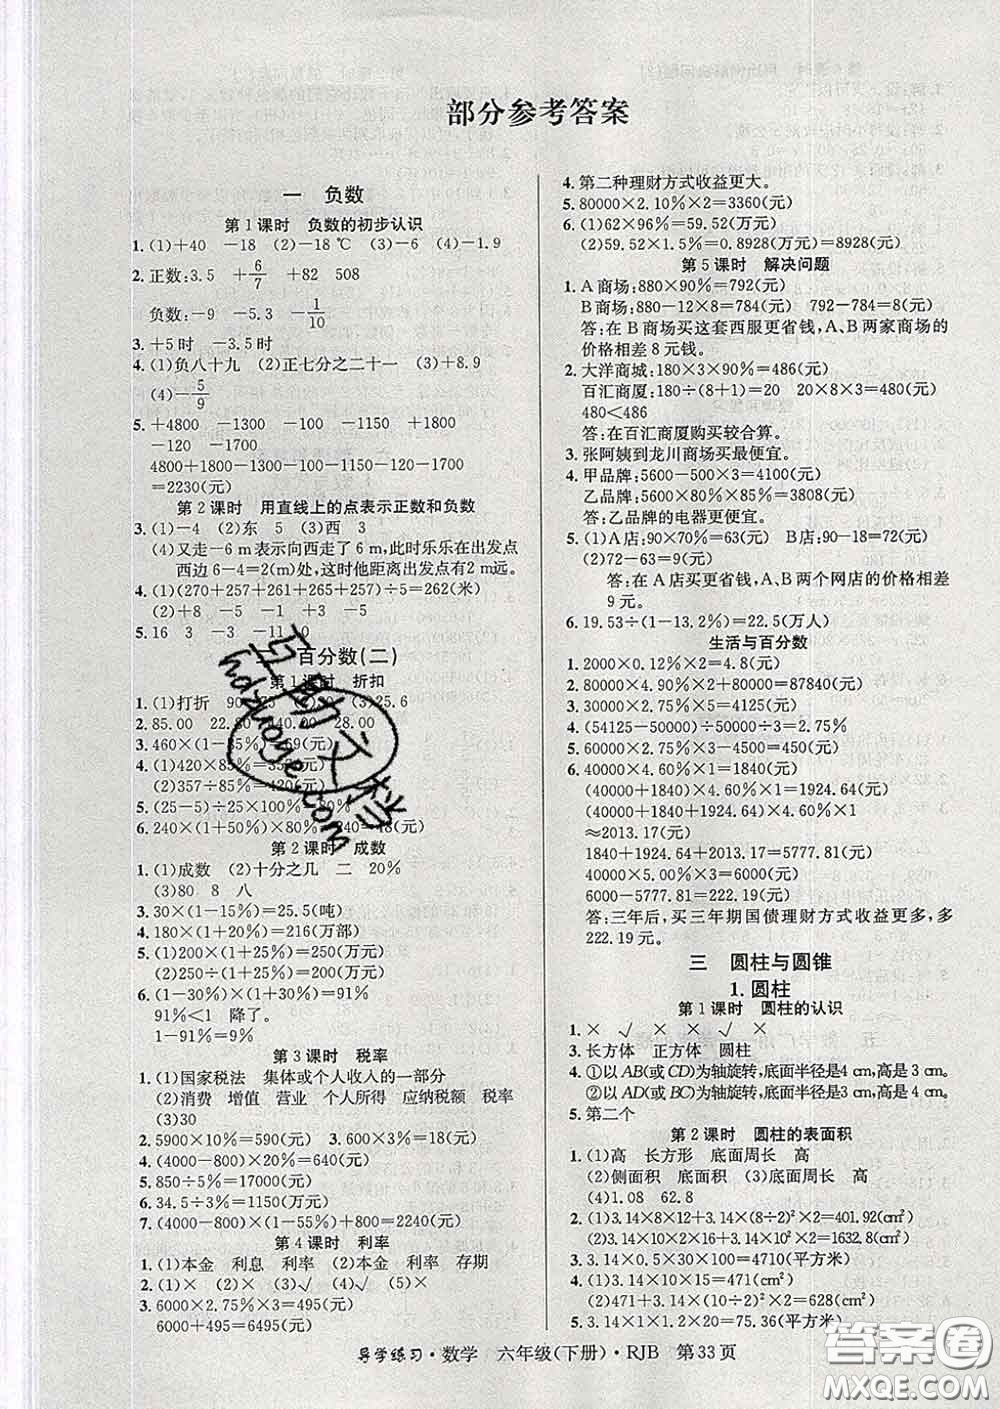 部分参考答案
一 负数
第1课时 负数的初步认识
1. (1)+40 -18 (2)-18℃ (3)-6 (4)-1.9
2. 正数:3.5 +6/7 +82 508
负数:-9 -5.3 -1/10
3. +5时 -3.5时
4. (1)负八十九 (2)正七分之二十一 (3)+8.9
(4)-5/9
5. +4800 -1300 -100 -1150 +1600
-120 -1700
4800+1800-1300-100-1150-120-1700
=2230(元)
第2课时 用直线上的点表示正数和负数
3. (1)-4 (2)东 5 (3)西 3
(4)又走-6 m表示向西走了6 m,此时乐乐在出发点
西边6-4=2(m)处,这时他距离出发点有2 m远。
4. (1)(270+257+261+265+257)÷5=262(米)
(2)+8 -5 -1 +3 -5
5. 16 3 -3 -11 10
二 百分数(二)
第1课时 折扣
1. (1)打折 90 (3)25.6
2. 85.00 22.80 140.00 28.00
3. 460×(1-85%)=69(元)
4. (1)420×85%=
(2)357÷85%=420(元)
5. (25-5)÷25×100%=80%
6. 240×(1+50%)×80%-240=48(元)
第2课时 成数
1. (1)成数 (2)十分之几 二 20%
(3)80 8 八
3. 30×(1-15%)=25.5(吨)
4. 180×(1+20%)=216(万部)
5. (1)200×(1+25%)=250(万元)
(2)250÷(1+25%)=200(万元)
6. (1-30%)×(1+30%)=91%
91%<1 降了。
1-91%=9%
第3课时 税率
1. (1)国家税法 集体或个人收入的一部分
(2)消费 增值 营业 个人所得 应纳税额 税率
(3)30
2. 5900×10%=590(元) 3. 600×3%=18(元)
4. (4000-800)×20%=640(元)
5. 850÷5%=17000(元)
6. 34.5÷3%=1150(万元)
7. (4000-800)×(1-55%)+800=2240(元)
第4课时 利率
1. (1)本金 利息 利率 (2)本金 利率 存期
2. (1)× (2)× (3)× (4)√ (5)√ (6)×
3. 6000×2.75%×3=495(元)
6000+495=6495(元)
4. 第二种理财方式收益更大。
5. 80000×2.10%×2=3360(元)
6. (1)62×96%=59.52(万元)
(2)59.52×1.5%=0.8928(万元)=8928(元)
第5课时 解决问题
1. A商场:880×90%=792(元)
B商场:880-12×8=784(元) 792-784=8(元)
答:在B商场买这套西服更省钱,A、B两家商场的
价格相差8元钱。
2. 大洋商城:180×3×90%=486(元)
百汇商厦:180÷(8+1)=20 20×8×3=480(元)
480<486
答:在百汇商厦购买较合算。
3. 张阿姨到龙川商场买最便宜。
4. 甲品牌:5600-500×3=4100(元)
乙品牌:5600×80%×85%=3808(元)
答:乙品牌的电器更便宜。
5. (1)A店:90×70%=63(元) B店:90-18=72(元)
(2)72-63=9(元)
答:在A店买更省钱,A、B两个网店的价格相差
9元。
6. 19.53÷(1-13.2%)=22.5(万人)
生活与百分数
1. 2000×0.12%×2=4.8(元)
2. 80000×4.90%×2+80000=87840(元)
3. 30000×2.75%×5=4125(元)
4. (54125-50000)÷50000÷3=2.75%
5. 60000×2.75%×3-4500=450(元)
6. 40000×4.60%×1=1840(元)
(40000+1840)×4.60%×1=1924.64(元)
(40000+1840+1924.64)×4.60%×1
≈2013.17(元)
1840+1924.64+2013.17=5777.81(元)
40000×5%×3=6000(元)
6000-5777.81=222.19(元)
答:三年后,买三年期国债理财方式收益更多,多
222.19元。
三 圆柱与圆锥
1. 圆柱
第1课时 圆柱的认识
1. × √ × × √ ×
3. 长方体 正方体 圆柱
4. ①以AB(或CD)为轴旋转,底面半径是4 cm,高是3 cm。
②以AD(或BC)为轴旋转,底面半径是3 cm,高是4 cm。
5. 第二个
第2课时 圆柱的表面积
1. (1)高 长方形 底面周长 高
(2)侧面积 底面积 (3)底面周长 高
(4)1.08 62.8
2. (1)3.14×8×12+3.14×(8÷2)²×2=401.92(cm²)
(2)3.14×10×2×16+3.14×10²×2=1632.8(cm²)
3. 3.14×0.5×30×100=4710(平方米)
4. (1)3.14×10×15=471(cm²)
(2)471+3.14×(10÷2)²×2=628(cm²)
5. 3.14×(1.2÷2)×2×20=75.36(平方米)
导学练习·数学 六年级(下册)·RJB 第33页
互助文档
hdzuoye.com
答案圈
MXQE.COM